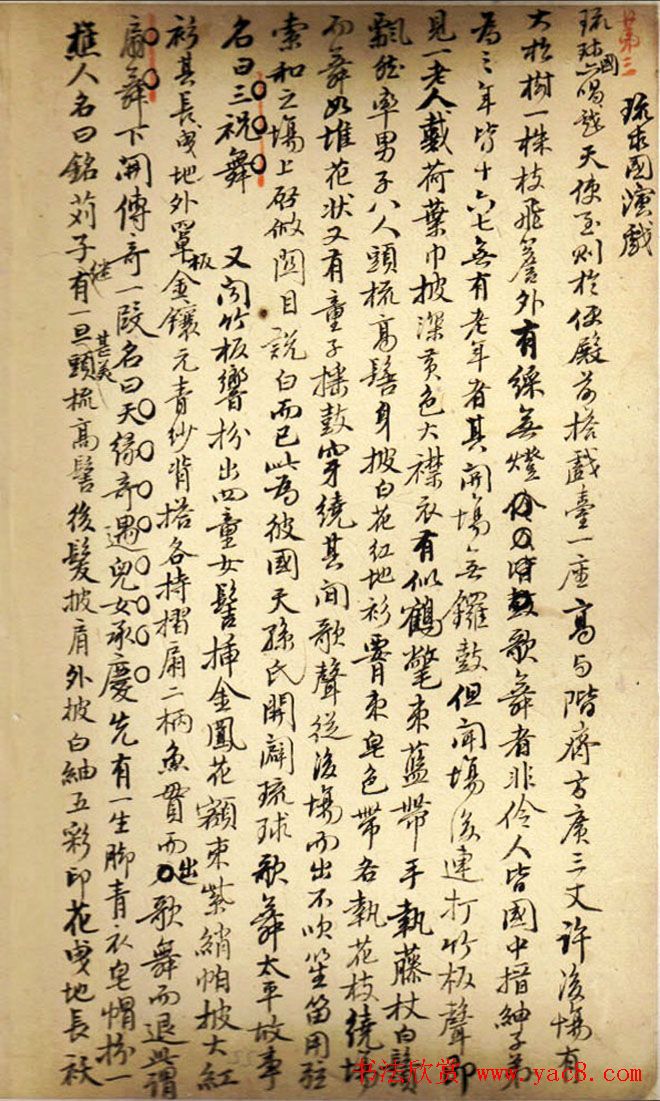 第三
琉球國演戲
琉球國亦唱戲天使至則於便殿前搭戲臺一座高与階齊方廣三丈許後場有
大松樹一株枝飛簷外有綵無燈歌舞者非伶人皆國中搢紳子弟
為之年皆十六七無有老年者其開場無鑼鼓但聞場後連打竹板聲即
見一老人戴荷葉巾披深黃色大襟衣有似鶴氅束藍帶手執藤杖白鬚
飄然率男子八人頭梳高髻身披白花紅地衫要束皂色帶各執花枝繞場
而舞如堆花狀又有童子搖鼓穿繞其間歌聲從後場而出不吹笙笛用弦
索和之場上啟做関目說白而已此為彼國天孫氏開闢琉球歌舞太平故事
名曰三祝舞 又聞竹板響扮出四童女髻揷金鳳花額束紫綃帕披大紅
衫其長曳地外罩金鑲元青紗背搭各持摺扇二柄魚貫而出歌舞而退此謂
板
扇舞下開傳奇一段名曰天緣奇遇兒女承慶先有一生脚青衣皂帽扮一
樵人名曰銘苅子有一旦頭梳高髻後髮披肩外披白紬五彩印花曳地長袄
継
甚美
书法欣赏 www.yac8.com